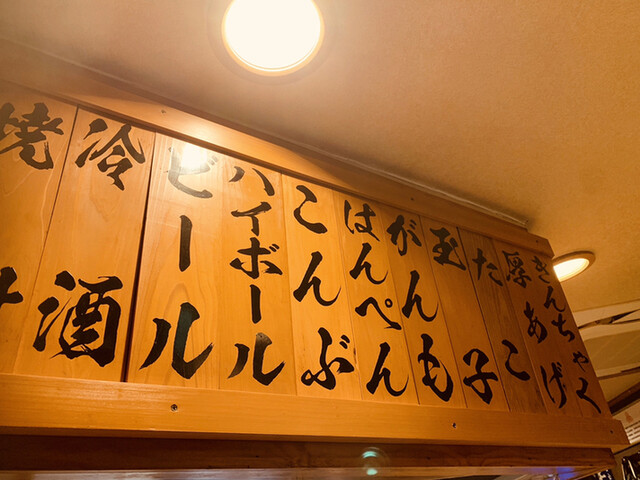 きんちゃく
厚あげ
たこ
玉子
がんも
はんぺん
こんぶ
ハイボール
ビール
冷酒
焼